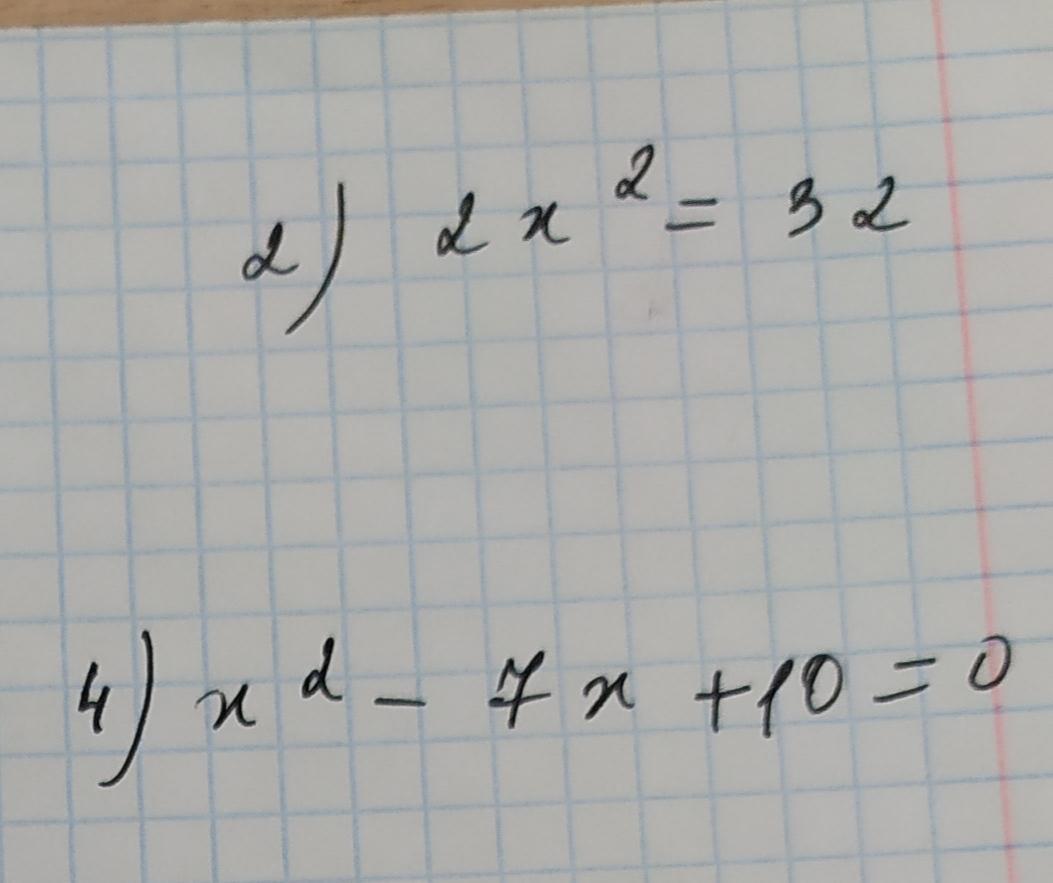 2) 2x² = 32
4) x² - 7x + 10 = 0